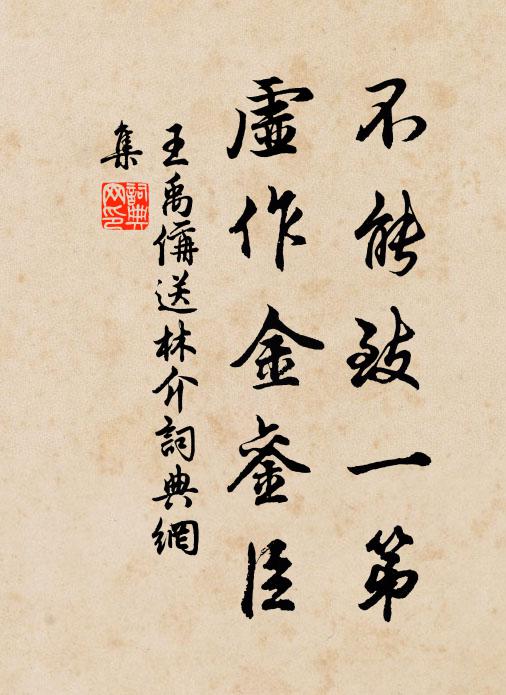 不能致一第
虛作金銮臣
王禹偁送林介詞典網
集
詞典网印